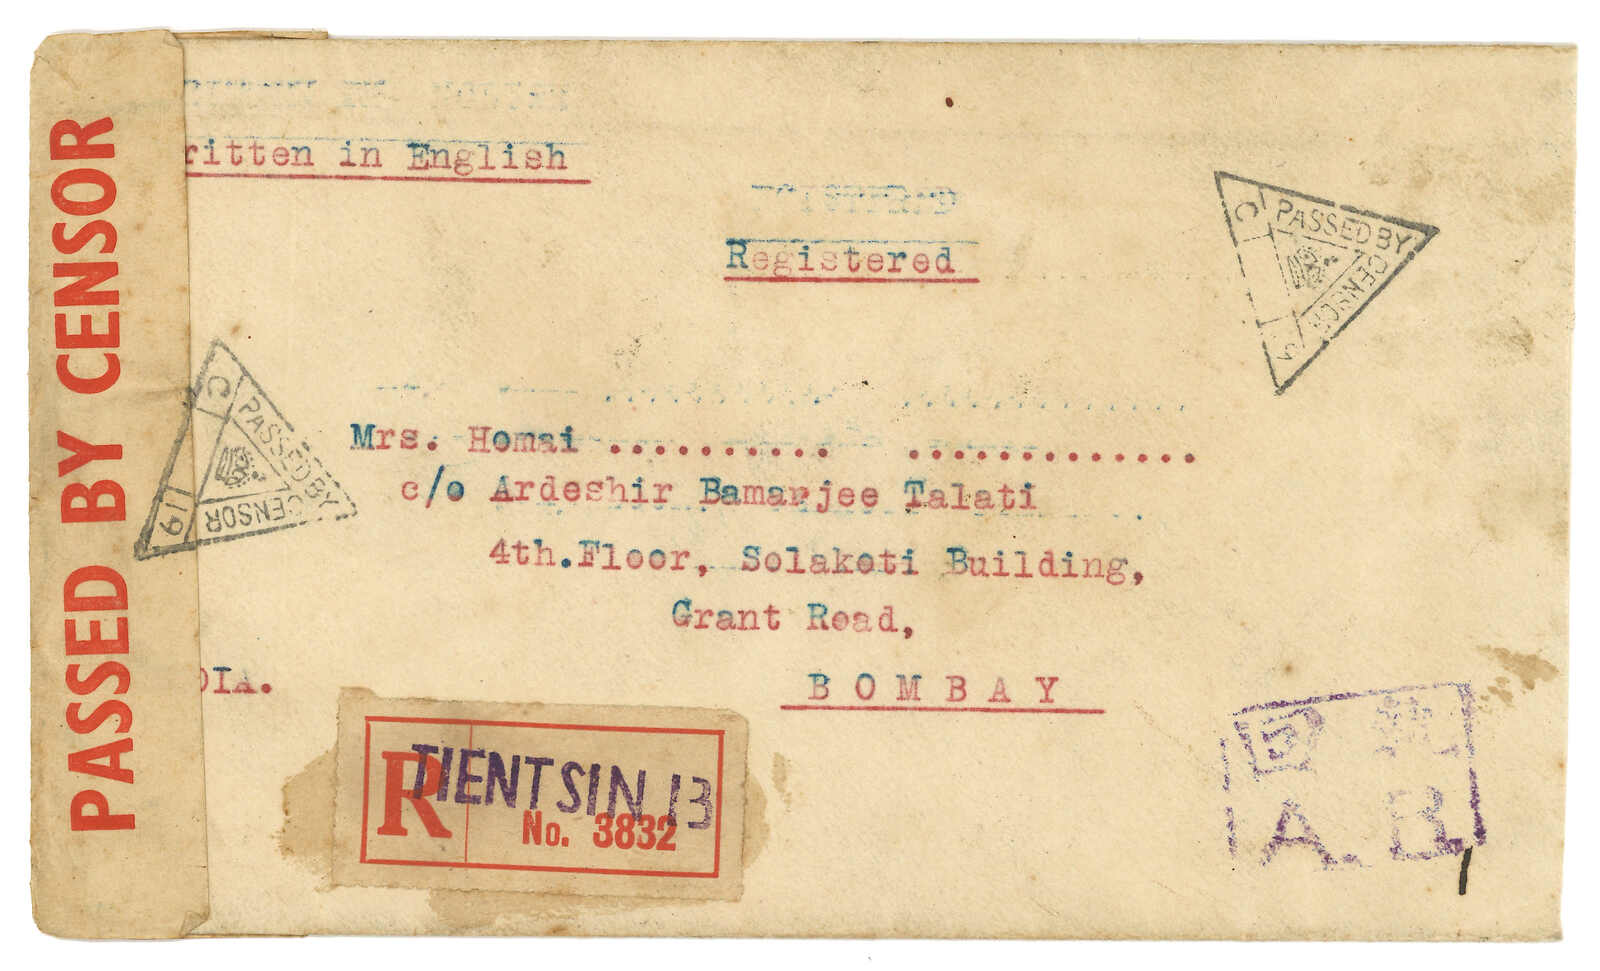 PASSED BY CENSOR
ritten in English
Registered
PASSED BY CENSOR
C
Mrs. Homai .......... .............
c/o Ardeshir Bamanjee Talati
4th.Floor, Solakoti Building,
Grant Road,
DIA.
BOMBAY
PASSED BY CENSOR
C
19
R
TIENTSIN 13
No. 3832
A.R.